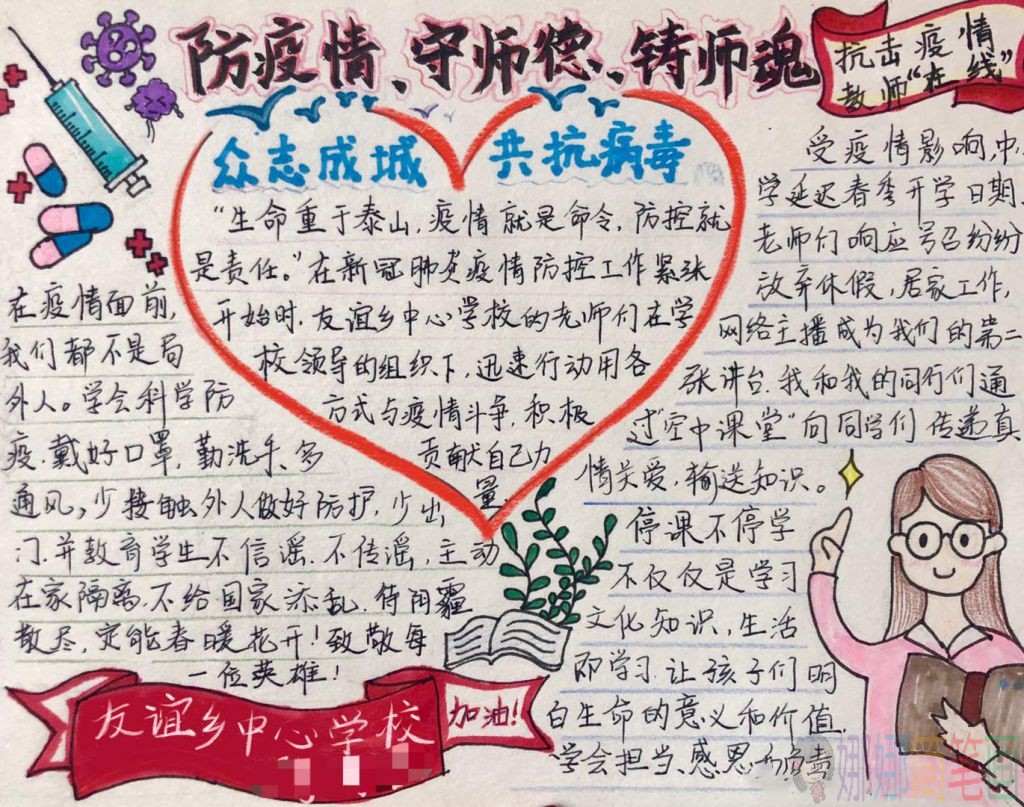 防疫情、守师德、铸师魂
抗击疫情
教师“在线”
众志成城 共抗病毒
“生命重于泰山,疫情就是命令,防控就
是责任。”在新冠肺炎疫情防控工作紧张
开始时,友谊乡中心学校的老师们在学
校领导的组织下,迅速行动用各
方式与疫情斗争,积极
贡献自己力
量.
在疫情面前,
我们都不是局
外人。学会科学防
疫.戴好口罩,勤洗手、多
通风,少接触外人做好防护,少出
门.并教育学生不信谣.不传谣,主动
在家隔离.不给国家添乱.待阴霾
散尽,定能春暖花开!致敬每
一位英雄!
受疫情影响,中
学延迟春季开学日期.
老师们响应号召纷纷
放弃休假,居家工作,
网络主播成为我们的第二
张讲台.我和我的同行们通
过“空中课堂”向同学们传递真
情关爱,输送知识。
停课不停学
不仅仅是学习
文化知识,生活
即学习.让孩子们明
白生命的意义和价值.
学会担当、感恩和负责
友谊乡中心学校
加油!
娜娜简笔画